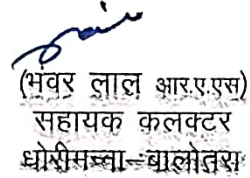 (भंवर लाल आर.ए.एस)
सहायक कलक्टर
धोरीमन्ना-बालोतरा